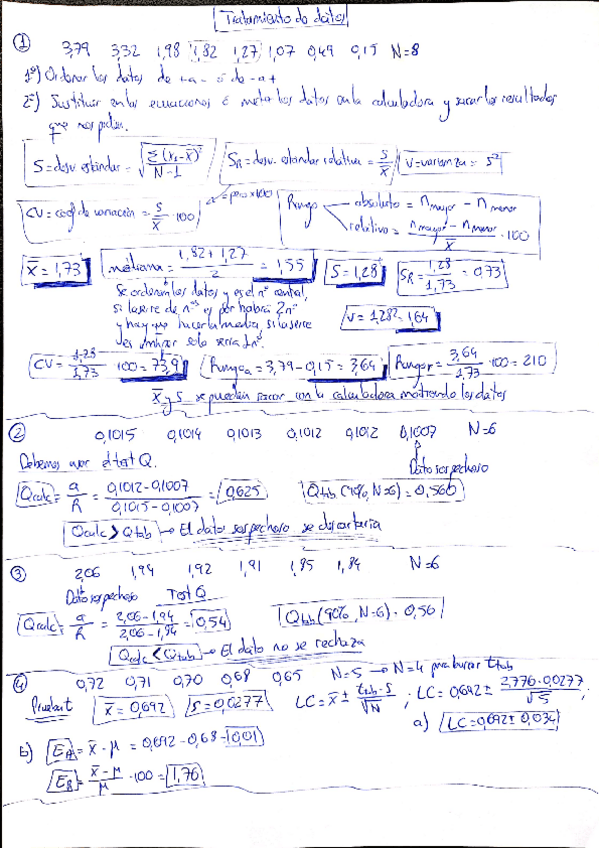 Tratamiento de datos
① 3,79 3,32 1,98 1,82 1,27 1,07 0,49 0,15 N=8
1º) Ordenar los datos de +a - ó de -a +
2º) Sustituir en las ecuaciones ó meter los datos en la calculadora y sacar los resultados
que nos piden.
S = desv. estándar = √(Σ(xi-x̄)²/N-1) SR = desv. estándar relativa = S/x̄ V = varianza = S²
CV = coef de variación = S/x̄ · 100 Rango absoluto = n mayor - n menor
relativo = n mayor - n menor / x̄ · 100
x̄ = 1,73 mediana = 1,82 + 1,27 / 2 = 1,55 S = 1,28 SR = 1,28 / 1,73 = 0,73
Se ordenan los datos y es el nº central,
si la serie de nºs es par habrá 2nº
y hay que hacer la media, si la serie
es impar solo sería 1nº
V = 1,28² = 1,64
CV = 1,28 / 1,73 · 100 = 73,9 Rango a = 3,79 - 0,15 = 3,64 Rango r = 3,64 / 1,73 · 100 = 210
x̄ y S se pueden sacar con la calculadora los datos
② 0,1015 0,1014 0,1013 0,1012 0,1012 0,1007 N=6
Debemos usar el test Q. Dato sospechoso
Qcalc = a/R = 0,1012 - 0,1007 / 0,1015 - 0,1007 = 0,625 Qtab (90%, N=6) = 0,560
Qcalc > Qtab → El dato sospechoso se descartaría
③ 2,06 1,94 1,92 1,91 1,85 1,84 N=6
Dato sospechoso Test Q
Qcalc = a/R = 2,06 - 1,94 / 2,06 - 1,84 = 0,54 Qtab (90%, N=6) = 0,56
Qcalc < Qtab → El dato no se rechaza
④ 0,72 0,71 0,70 0,68 0,65 N=5 → N=4 para buscar t tab
Prueba t x̄ = 0,692 S = 0,0277 LC = x̄ ± t tab · S / √N ; LC = 0,692 ± 2,776 · 0,0277 / √5 ;
a) LC = 0,692 ± 0,034
b) EA = x̄ - μ = 0,692 - 0,68 = 0,01
ER = x̄ - μ / μ · 100 = 1,76